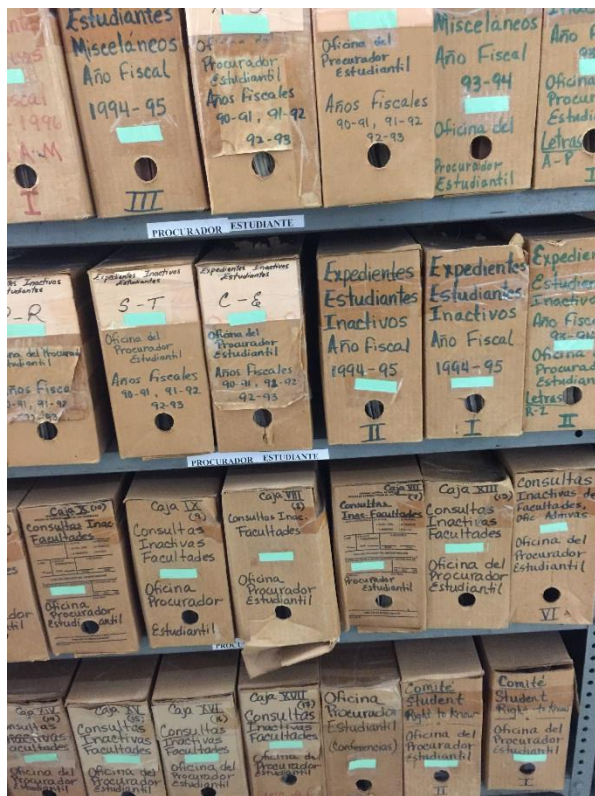 1996
A-M
I
Estudiantes
Misceláneos
Año Fiscal
1994-95
III
Oficina del
Procurador
Estudiantil
Años Fiscales
90-91, 91-92
92-93
Oficina del
Procurador
Estudiantil
Años Fiscales
90-91, 91-92
92-93
Misceláneos
Año Fiscal
93-94
Oficina del
Procurador
Estudiantil
Letras
A-P
PROCURADOR ESTUDIANTE
Expedientes Inactivos
Estudiantes
S-T
Oficina del
Procurador
Estudiantil
Años Fiscales
90-91, 91-92
92-93
Expedientes Inactivos
Estudiantes
C-E
Oficina del
Procurador
Estudiantil
Años Fiscales
90-91, 91-92
92-93
Expedientes
Estudiantes
Inactivos
Año Fiscal
1994-95
II
Expedientes
Estudiantes
Inactivos
Año Fiscal
1994-95
I
Letras
R-Z
II
PROCURADOR ESTUDIANTE
Caja X (10)
Consultas Inac.
Facultades
Oficina
Procurador
Caja IX
(9)
Consultas
Inactivas
Facultades
Oficina
Procurador
Estudiantil
Caja VIII
(8)
Consultas Inac.
Facultades
Oficina
Procurador
Estudiantil
Caja VII
Consultas
Inac. Facultades
Procurador
Estudiantil
Caja XIII
(13)
Consultas
Inactivas
Facultades
Oficina del
Procurador
Estudiantil
Consultas
Inactivas de
Facultades,
Ofic Admvas
Oficina del
Procurador
Estudiantil
VI
Caja XIV
(14)
Oficina del
Procurador
Estudiantil
Caja XV
(15)
Consultas
Inactivas
Facultades
Oficina del
Procurador
Estudiantil
Caja XVI
(16)
Consultas
Inactivas
Facultades
Oficina del
Procurador
Estudiantil
Caja XVII
(17)
Consultas
Inactivas
Facultades
Oficina del
Procurador
Estudiantil
Oficina
Procurador
Estudiantil
(Conferencias)
Comité
Student
Right to Know
Oficina del
Procurador
Estudiantil
II
Comité
Student
Right to Know
Oficina del
Procurador
Estudiantil
I